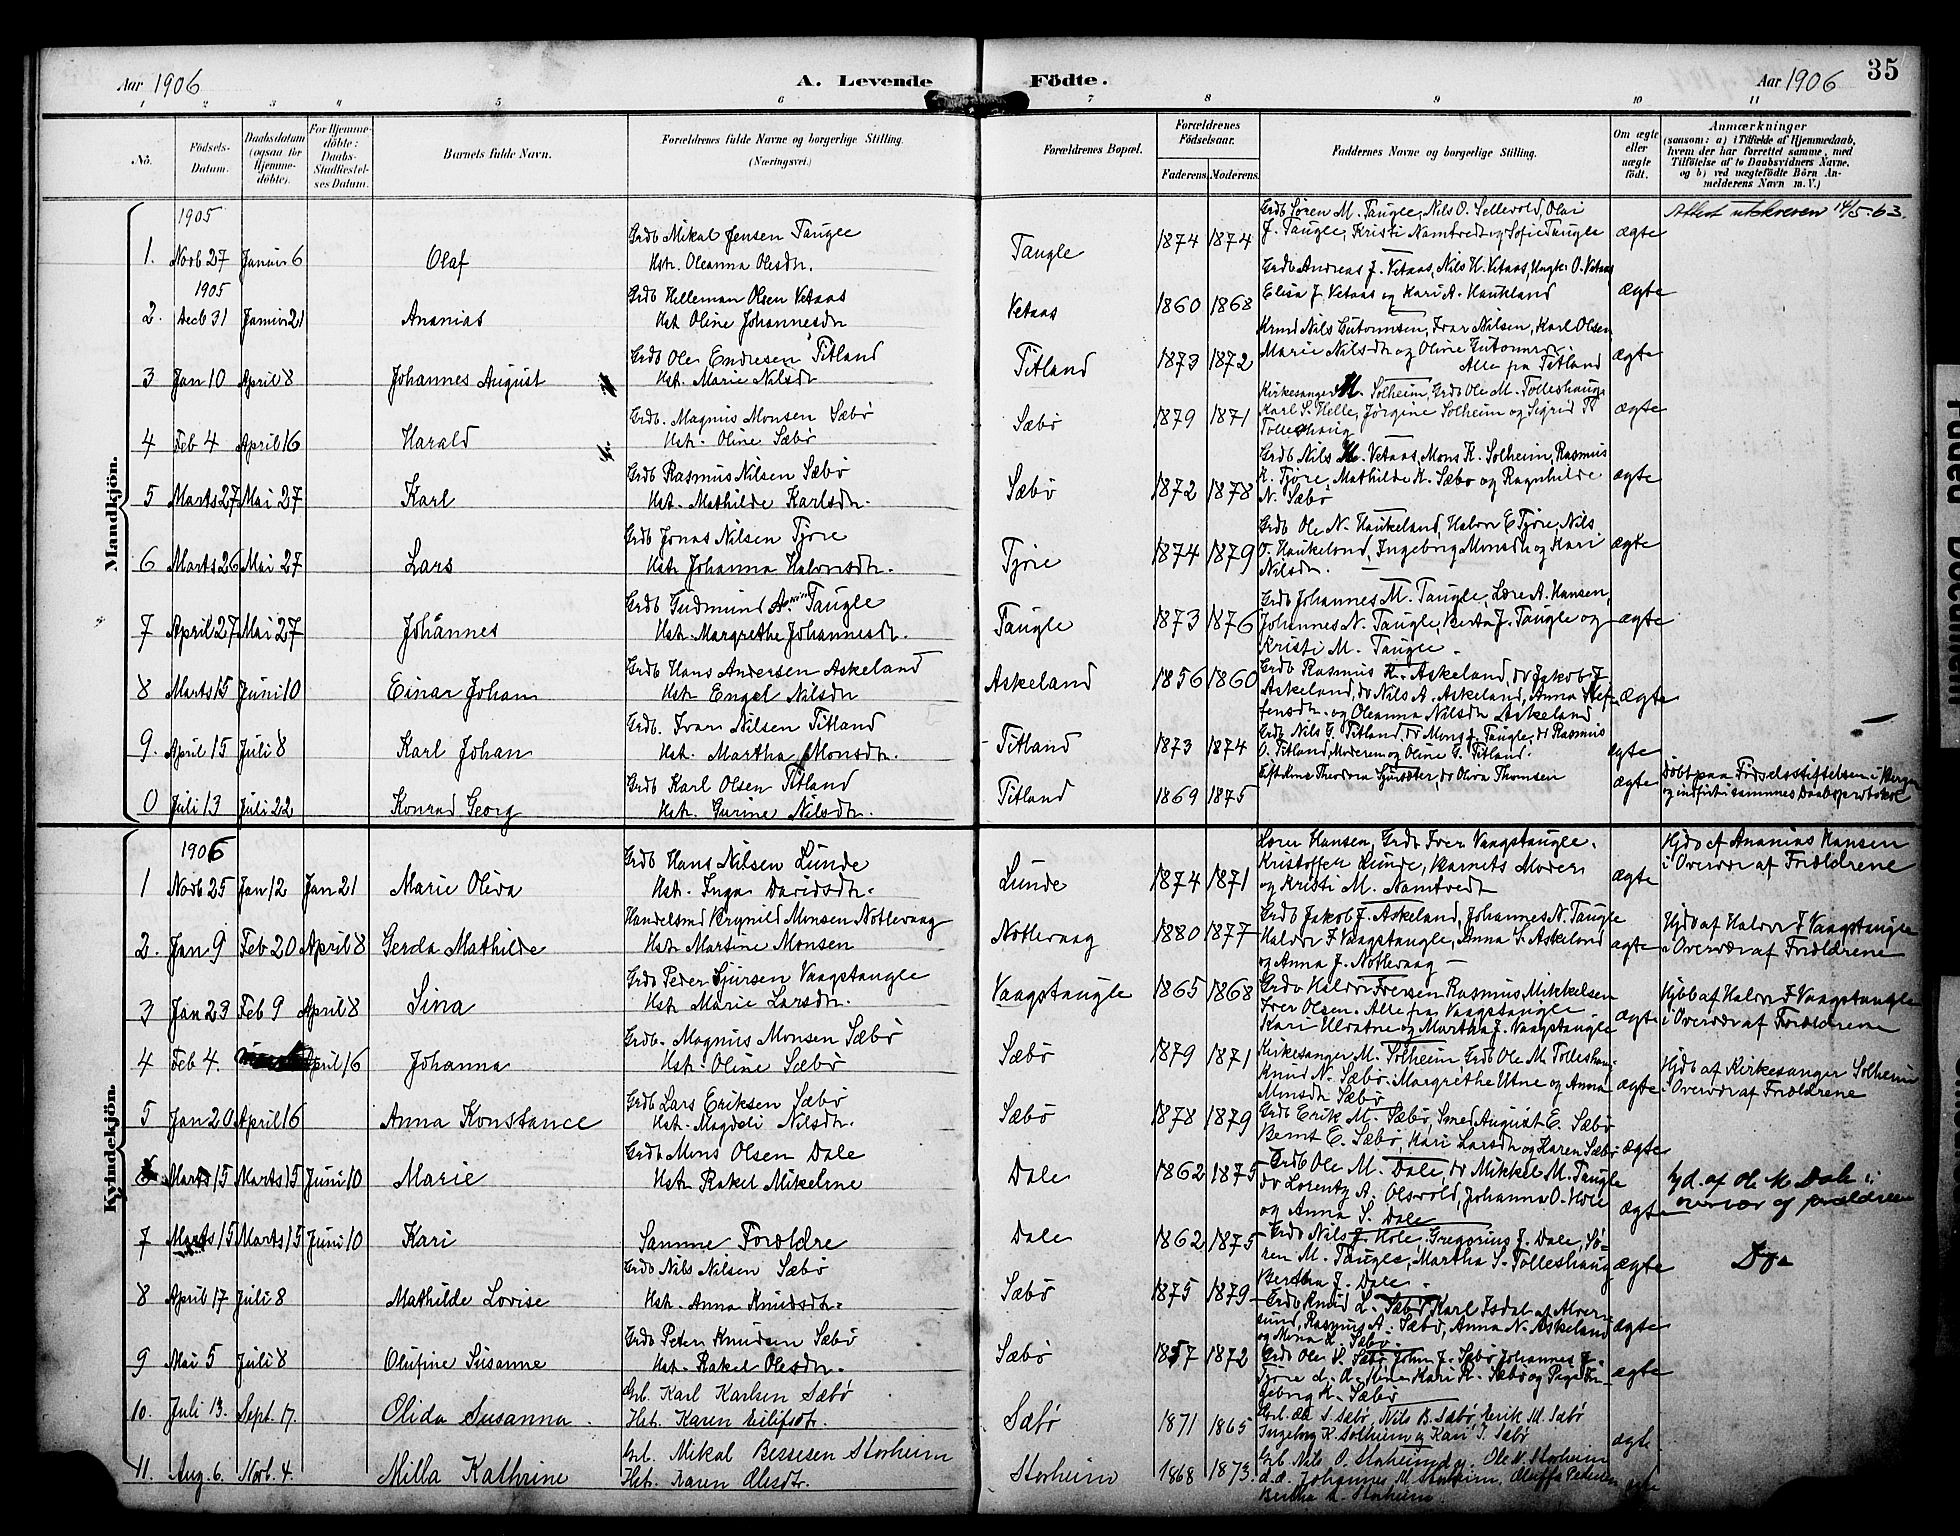 Aar 1906
A. Levende Födte.
Aar 1906
35
1 2 3 4 5 6 7 8 9 10 11
No.
Födsels-Datum.
Daabsdatum (ogsaa for Hjemme-döbte).
For Hjemme-döbte: Daabs-Stadfæstel-ses Datum.
Barnets fulde Navn.
Forældrenes fulde Navne og borgerlige Stilling. (Næringsvei.)
Forældrenes Bopæl.
Forældrenes Födselsaar.
Faderens. Moderens.
Faddernes Navne og borgerlige Stilling.
Om ægte eller uægte födt.
Anmærkninger
(saasom: a) i Tilfælde af Hjemmedaab, hvem der har forrettet samme, med Tilföielse af to Daabsvidners Navne, og b) ved uægtefödte Börn Anmelderens Navn m. V.)
Mandkjön.
1905
1. Novb 27 Januar 6 Olaf Grdb Mikal Jensen Taugle
Hstr. Oleanna Olesdtr. Taugle 1874 1874 Grdb Søren M. Taugle, Nils O. Sellevold, Olai
J. Taugle, Kristi Namtvedt og Sofie Taugle ægte Attest utskreven 14/5-63.
1905
2. Decb 31 Januar 21 Ananias Grdb Helleman Olsen Vetaas
Hstr. Oline Johannesdtr Vetaas 1860 1868 Grdb Andreas J. Vetaas, Nils H. Vetaas, Ungk. O. Vetaas
Elisa J. Vetaas og Kari A. Haukland ægte
3 Jan 10 April 8 Johannes August Grdb Ole Endresen Titland
Hstr. Marie Nilsdtr Titland 1873 1872 Nils Gutormsen, Ivar Nilsen, Karl Olsen
Marie Nilsdtr og Oline Gutormsen.
Alle fra Titland ægte
4 Feb 4 April 16 Harald Grdb. Magnus Monsen Sæbø
Hstr. Oline Sæbø Sæbø 1879 1871 Kirkesanger M. Solheim, Grdb Ole M. Tolleshaug
Karl S. Helle, Jørgine Solheim og Sigrid
Tolleshaug ægte
5 Marts 27 Mai 27 Karl Grdb Rasmus Nilsen Sæbø
Hstr. Mathilde Karlsdtr. Sæbø 1872 1878 Grdb Nils H. Vetaas, Mons K. Solheim, Rasmus
K. Tjøre, Mathilde K. Sæbø og Ragnhilde
N. Sæbø ægte
6 Marts 26 Mai 27 Lars Grdb Jonas Nilsen Tjøre
Hstr Johanna Halvorsdtr. Tjøre 1874 1879 Grdb Ole N. Haukeland, Halvor E Tjøre, Nils
O. Haukeland, Ingeborg Monsdtr og Kari
Nilsdtr. ægte
7 April 27 Mai 27 Johannes Grdb Gudmund A. Taugle
Hstr. Margrethe Johannesdtr. Taugle 1873 1876 Grdb Johannes M. Taugle, Lærer A. Hansen,
Johannes N. Taugle, Berta J. Taugle og
Kristi M. Taugle. ægte
8 Marts 15 Juni 10 Einar Johan Grdb Hans Andersen Askeland
Hstr Engel Nilsdtr Askeland 1856 1860 Grdb Rasmus K. Askeland, do Jakob J
Askeland, do Nils A. Askeland, Anna Steffensdtr. og Oleanna Nilsdtr Askeland ægte
9. April 15 Juli 8 Karl Johan Grdb. Ivar Nilsen Titland
Hstr. Martha Monsdtr. Titland 1873 1874 Grdb Nils G. Titland, do Mons J. Taugle, do Rasmus
O. Titland, Moderen og Oline G. Titland. ægte
0 Juli 13 Juli 22 Konrad Georg Grdb Karl Olsen Titland
Hstr. Gurine Nilsdtr. Titland 1869 1875 Theodora, do Oliva Thomsen ægte Döbt paa Födselsstiftelsen i Bergen
og indfört i sammes Daabsprotokol
Kvindekjön.
1906
1 Novb 25 Jan 12 Jan 21 Marie Oliva Grdb Hans Nilsen Lunde
Hstr. Inga Davidsdtr. Lunde 1874 1871 Lærer Hansen, Grdb Iver Vaagstaugle.
Kristoffer Lunde, Barnets Moder
og Kristi M. Namtvedt ægte Hjdb af Ananias Hansen
i Overvær af Forældrene
2. Jan 9 Feb 20 April 8 Gerda Mathilde Handelsmd Brynild Monsen Notlevaag
Hstr Martine Monsen Notlevaag 1880 1877 Grdb Jakob J. Askeland, Johannes N. Taugle
Halvor I Vaagstaugle, Anna S. Askeland
og Anna J. Notlevaag ægte Hjdb af Halvor I Vaagstaugle
i Overvær af Forældrene
3 Jan 23 Feb 9 April 8 Sina Grdb Peder Sjursen Vaagstaugle
Hstr. Marie Larsdtr. Vaagstaugle 1865 1868 Grdb Halvor Iversen Rasmus Mikkelsen
Iver Olsen. Alle fra Vaagstaugle
Kari Ulvatne og Martha J. Vaagstaugle ægte Hjdb af Halvor I Vaagstaugle
i Overvær af Forældrene
4 Feb 4. April 16 Johanna Grdb. Magnus Monsen Sæbø
Hstr. Oline Sæbø Sæbø 1879 1871 Kirkesanger M. Solheim Grdb Ole M. Tolleshaug
Knud N. Sæbø. Margrethe Utne og Anna
Monsdtr Sæbø ægte Hjdb af Kirkesanger Solheim
i Overvær af Forældrene
5 Jan 20 April 16 Anna Konstance Grdb Lars Eriksen Sæbø
Hstr. Magdeli Nilsdtr. Sæbø 1878 1879 Grdb Erik M. Sæbø, Smed August E. Sæbø
Bernt E. Sæbø, Kari Larsdtr og Karen Sæbø ægte
6 Marts 15 Marts 15 Juni 10 Marie Grdb Mons Olsen Dale
Hstr Rakel Mikeline Dale 1862 1875 Grdb Ole M. Dale, do Mikkel M. Taugle
do Lorentz A. Olsvold, Johanna O. Hole
og Anna S. Dale ægte hjd. af Ole M Dale i
overvær af forældrene
7 Marts 15 Marts 15 Juni 10 Kari Samme Forældre Dale 1862 1875 Grdb Nils J. Hole, Gregorius J. Dale, Søren M. Taugle, Martha S. Tolleshaug
Bertha J. Dale. ægte Do
8 April 17 Juli 8 Mathilde Lovise Grdb Nils Nilsen Sæbø
Hstr. Anna Knudsdtr. Sæbø 1875 1879 Grdb Knud L. Sæbø Karl Isdal af Alversund, Rasmus A. Sæbø, Anna N. Askeland
og Mona L. Sæbø. ægte
9 Mai 5 Juli 8 Olufine Susanne Grdb Peter Knudsen Sæbø
Hstr. Rakel Olesdtr. Sæbø 1857 1872 Grdb Ole Sæbø John J. Sæbø Johannes J.
Tjøre Kari K. Sæbø og Pige Ingeborg K. Sæbø ægte
10. Juli 13. Sept. 17. Olida Susanna. Grb. Karl Karlsen Sæbø
Hstr. Karen Eilifsdtr. Sæbø 1871 1865 Grb. Ole S. Sæbø, Nils B. Sæbø, Erik M. Sæbø
Ingeborg K. Solheim og Kari I. Sæbø ægte
11. Aug. 6. Novb. 4. Milla Kathrine Grb. Mikal Bessesen Storheim
Hstr. Karen Olesdtr. Storheim 1868 1873. Grb. Nils O. Storheim Ole N. Storheim
Johannes M. Storheim, Oluffa Pedersen
Bertha Storheim. ægte